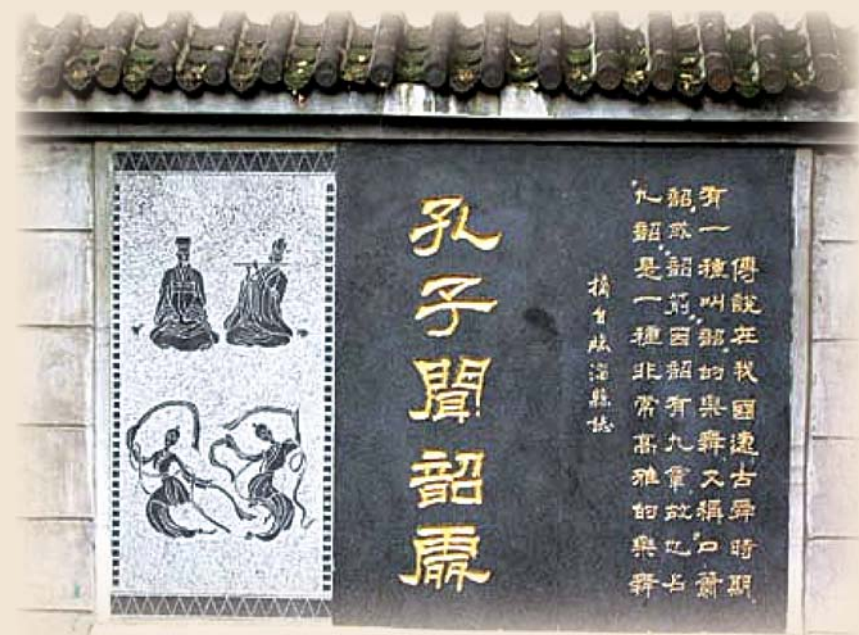 傳說在我國遠古舜時期
有一種叫“韶”的樂舞又稱口簫
韶”或“韶箾”因韶有九章故也名
“九韶”是一種非常高雅的樂舞
摘自臨淄縣誌
孔子聞韶處